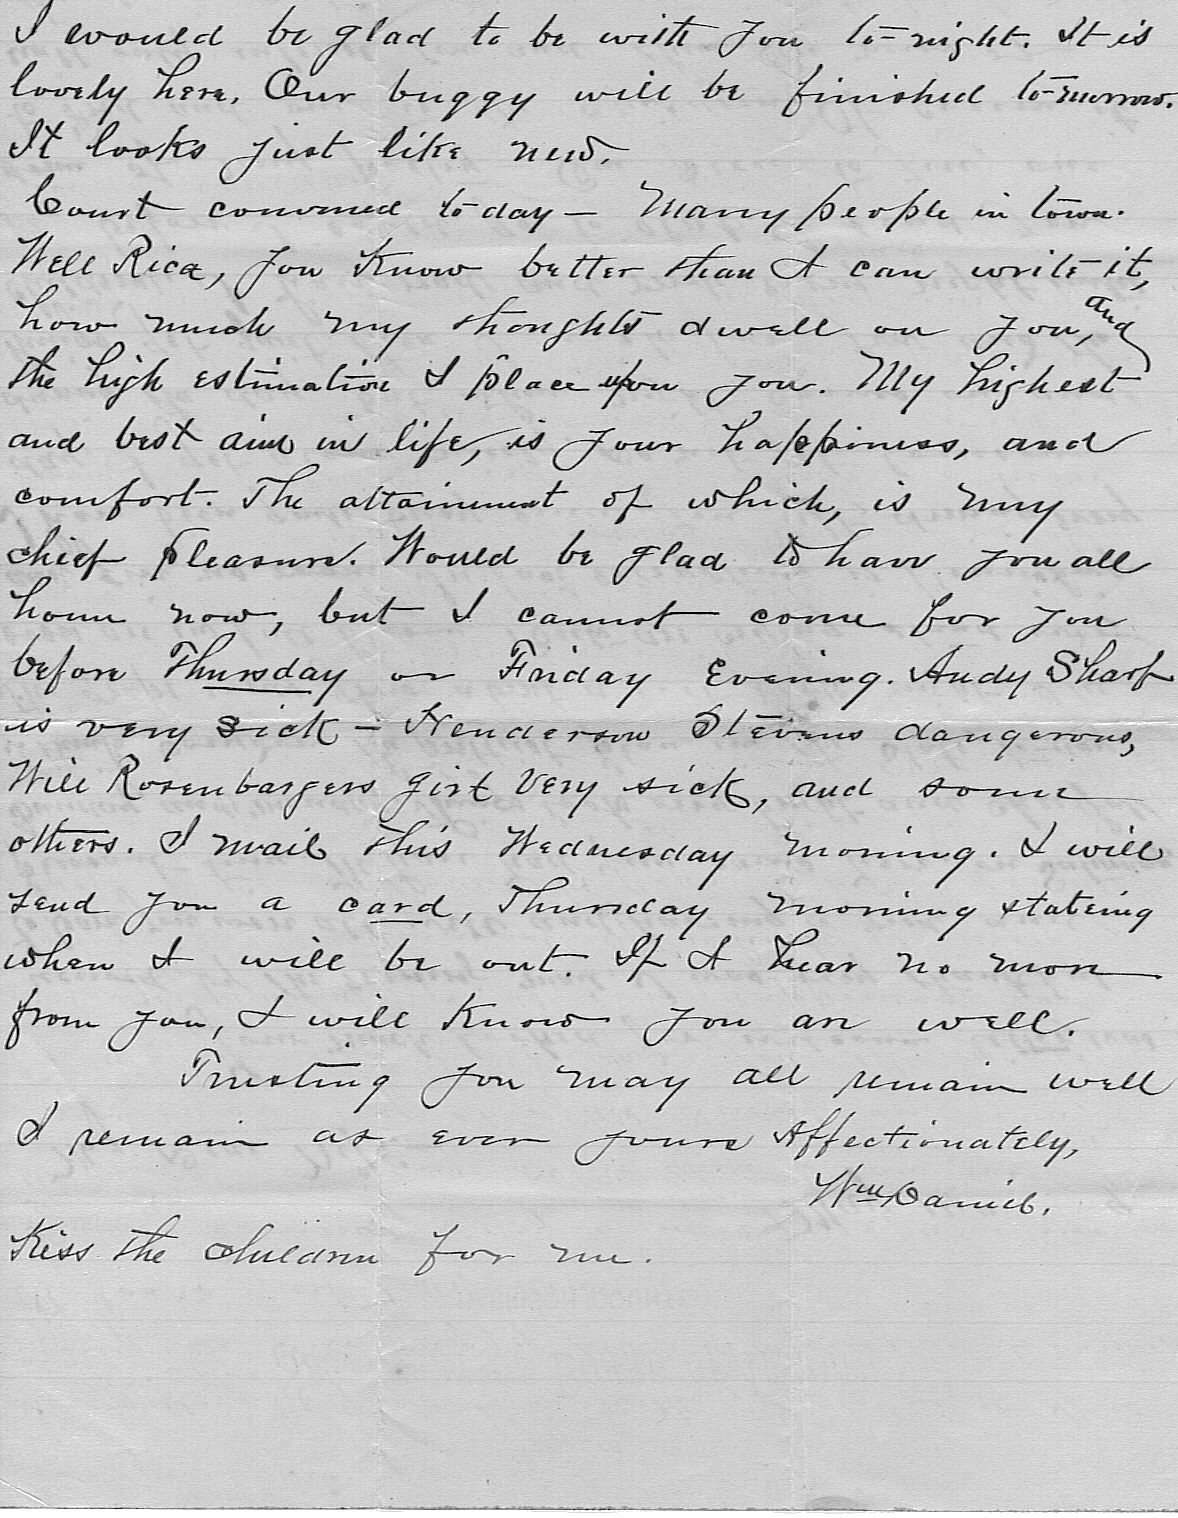 I would be glad to be with you to-night. It is
lovely here. Our buggy will be finished to-morrow.
It looks just like new.
Court convened to day — Many people in town.
Well Rica, you know better than I can write it,
how much my thoughts dwell on you, and
the high estimation I place upon you. My highest
and best aim in life, is your happiness, and
comfort. The attainment of which, is my
chief pleasure. Would be glad to have you all
home now, but I cannot come for you
before Thursday or Friday Evening. Andy Sharf
is very sick — Henderson Stevens dangerous,
Will Rosenbargers girl very sick, and some
others. I mail this Wednesday morning. I will
send you a card, Thursday morning stateing
when I will be out. If I hear no more
from you, I will know you are well.
Trusting you may all remain well
I remain as ever yours Affectionately,
Wm Daniel.
Kiss the children for me.